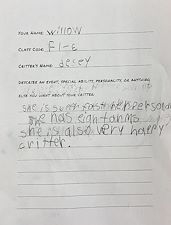 YOUR NAME: willow
CLASS CODE: F1-E
CRITTER'S NAME: desey
DESCRIBE AN EVENT, SPECIAL ABILITY, PERSONALITY, OR ANYTHING
ELSE YOU WANT ABOUT YOUR CRITTER.
she is
she has arms
she is also very happy
critter.